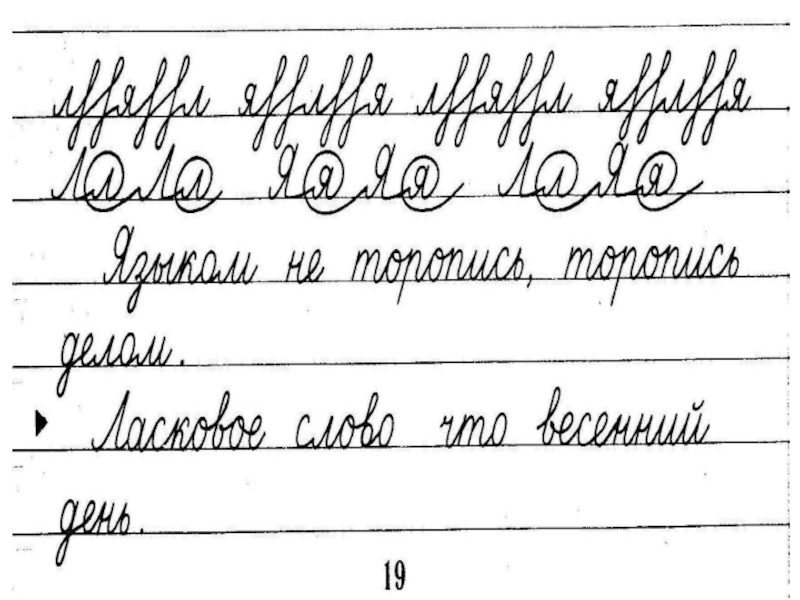 Лл Лл Яя Яя Лл Яя
Языком не торопись, торопись
делом.
Ласковое слово что весенний
день.
19